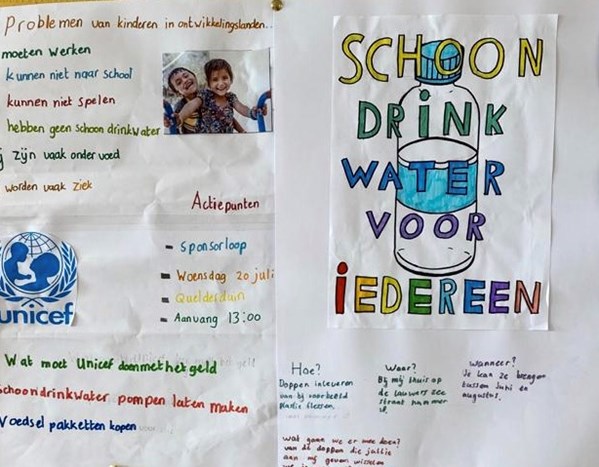 Problemen van kinderen in ontwikkelingslanden..
moeten werken
kunnen niet naar school
kunnen niet spelen
hebben geen schoon drinkwater
zijn vaak onder voed
worden vaak ziek
Actiepunten
- Sponsorloop
- Woensdag 20 juli
- Quelderduin
- Aanvang 13:00
unicef
Wat moet Unicef doen met het geld
Schoon drinkwater pompen laten maken
Voedsel pakketten kopen
SCHOON
DRINK
WATER
VOOR
IEDEREEN
Hoe?
Doppen inleveren
van bij voorbeeld
plastic flessen.
Waar?
Bij mij thuis op
de lauwers zee
straat nummer
Wanneer?
Je kan ze brengen
tussen Juni en
augustus.
wat gaan we er mee doen?
van de doppen die jullie
aan mij geven wisselen
we